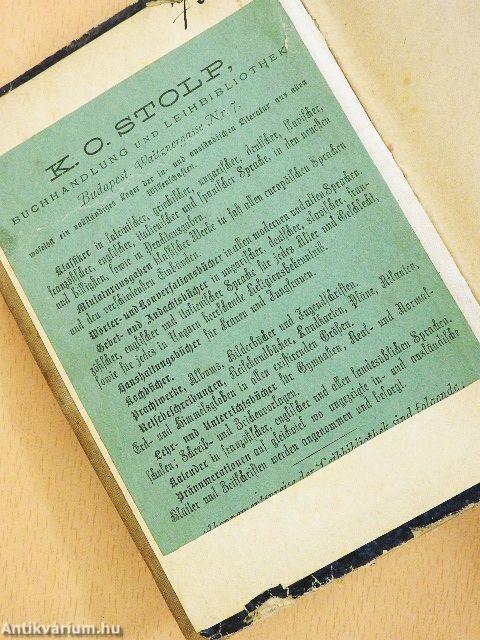 K. O. STOLP,
BUCHHANDLUNG UND LEIHBIBLIOTHEK
Budapest, Waitznergasse Nr. 7,
woselbst ein vollständiges Lager der in- und ausländischen Literatur aus allen
Wissenschaften.
Klassiker in lateinischer, griechischer, ungarischer, deutscher, slavischer,
französischer, englischer, italienischer und spanischer Sprache, in den neuesten
und billigsten, sowie in Prachtausgaben.
Miniaturausgaben klassischer Werke in fast allen europäischen Sprachen
und den verschiedensten Einbänden.
Wörter- und Konversationsbücher in allen modernen und alten Sprachen.
Gebet- und Andachtsbücher in ungarischer, deutscher, slavischer, fran-
zösischer, englischer und italienischer Sprache für jedes Alter und Geschlecht,
sowie für jedes in Ungarn herrschende Religionsbekenntniß.
Haushaltungsbücher für Frauen und Jungfrauen.
Kochbücher.
Prachtwerke, Albums, Bilderbücher und Jugendschriften.
Reisebeschreibungen, Reisehandbücher, Landkarten, Pläne, Atlanten,
Erd- und Himmelsgloben in allen existirenden Größen.
Lehr- und Unterrichtsbücher für Gymnasien, Real- und Normal-
schulen, Schreib- und Zeichenvorlagen.
Kalender in französischer, englischer und allen landesüblichen Sprachen.
Pränumerationen auf gleichviel wo angezeigte in- und ausländische
Blätter und Zeitschriften werden angenommen und besorgt.
der Leihbibliothek sind folgende:
Antikvárium.hu